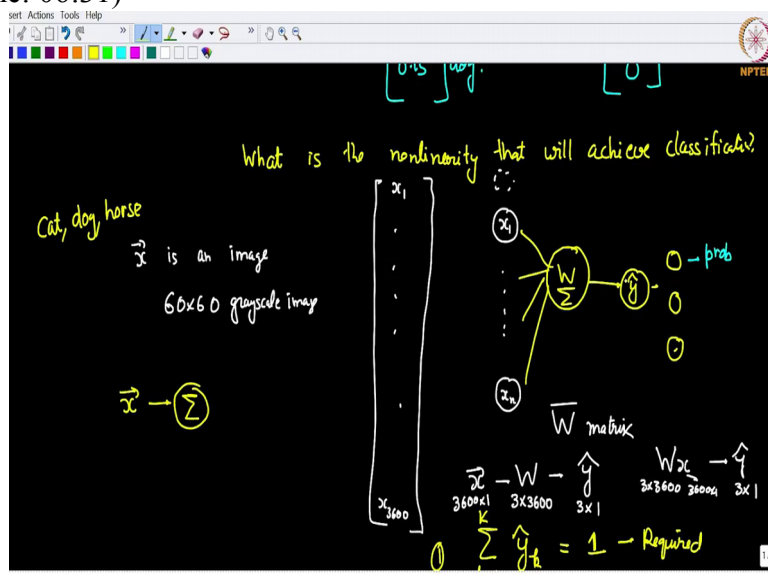 sert Actions Tools Help
NPTEL
0.15 dog.
0
What is the nonlinerity that will achieve classification?
Cat, dog, horse
x⃗ is an image
60x60 grayscale image
x⃗ → Σ
x₁
x₃₆₀₀
x₁
xₙ
W
Σ
ŷ
0 - prob
0
0
W̅ matrix
x⃗ - W - ŷ
3600x1 3x3600 3x1
Wx - ŷ
3x3600 3600x1 3x1
K
Σ ŷₖ = 1 - Required